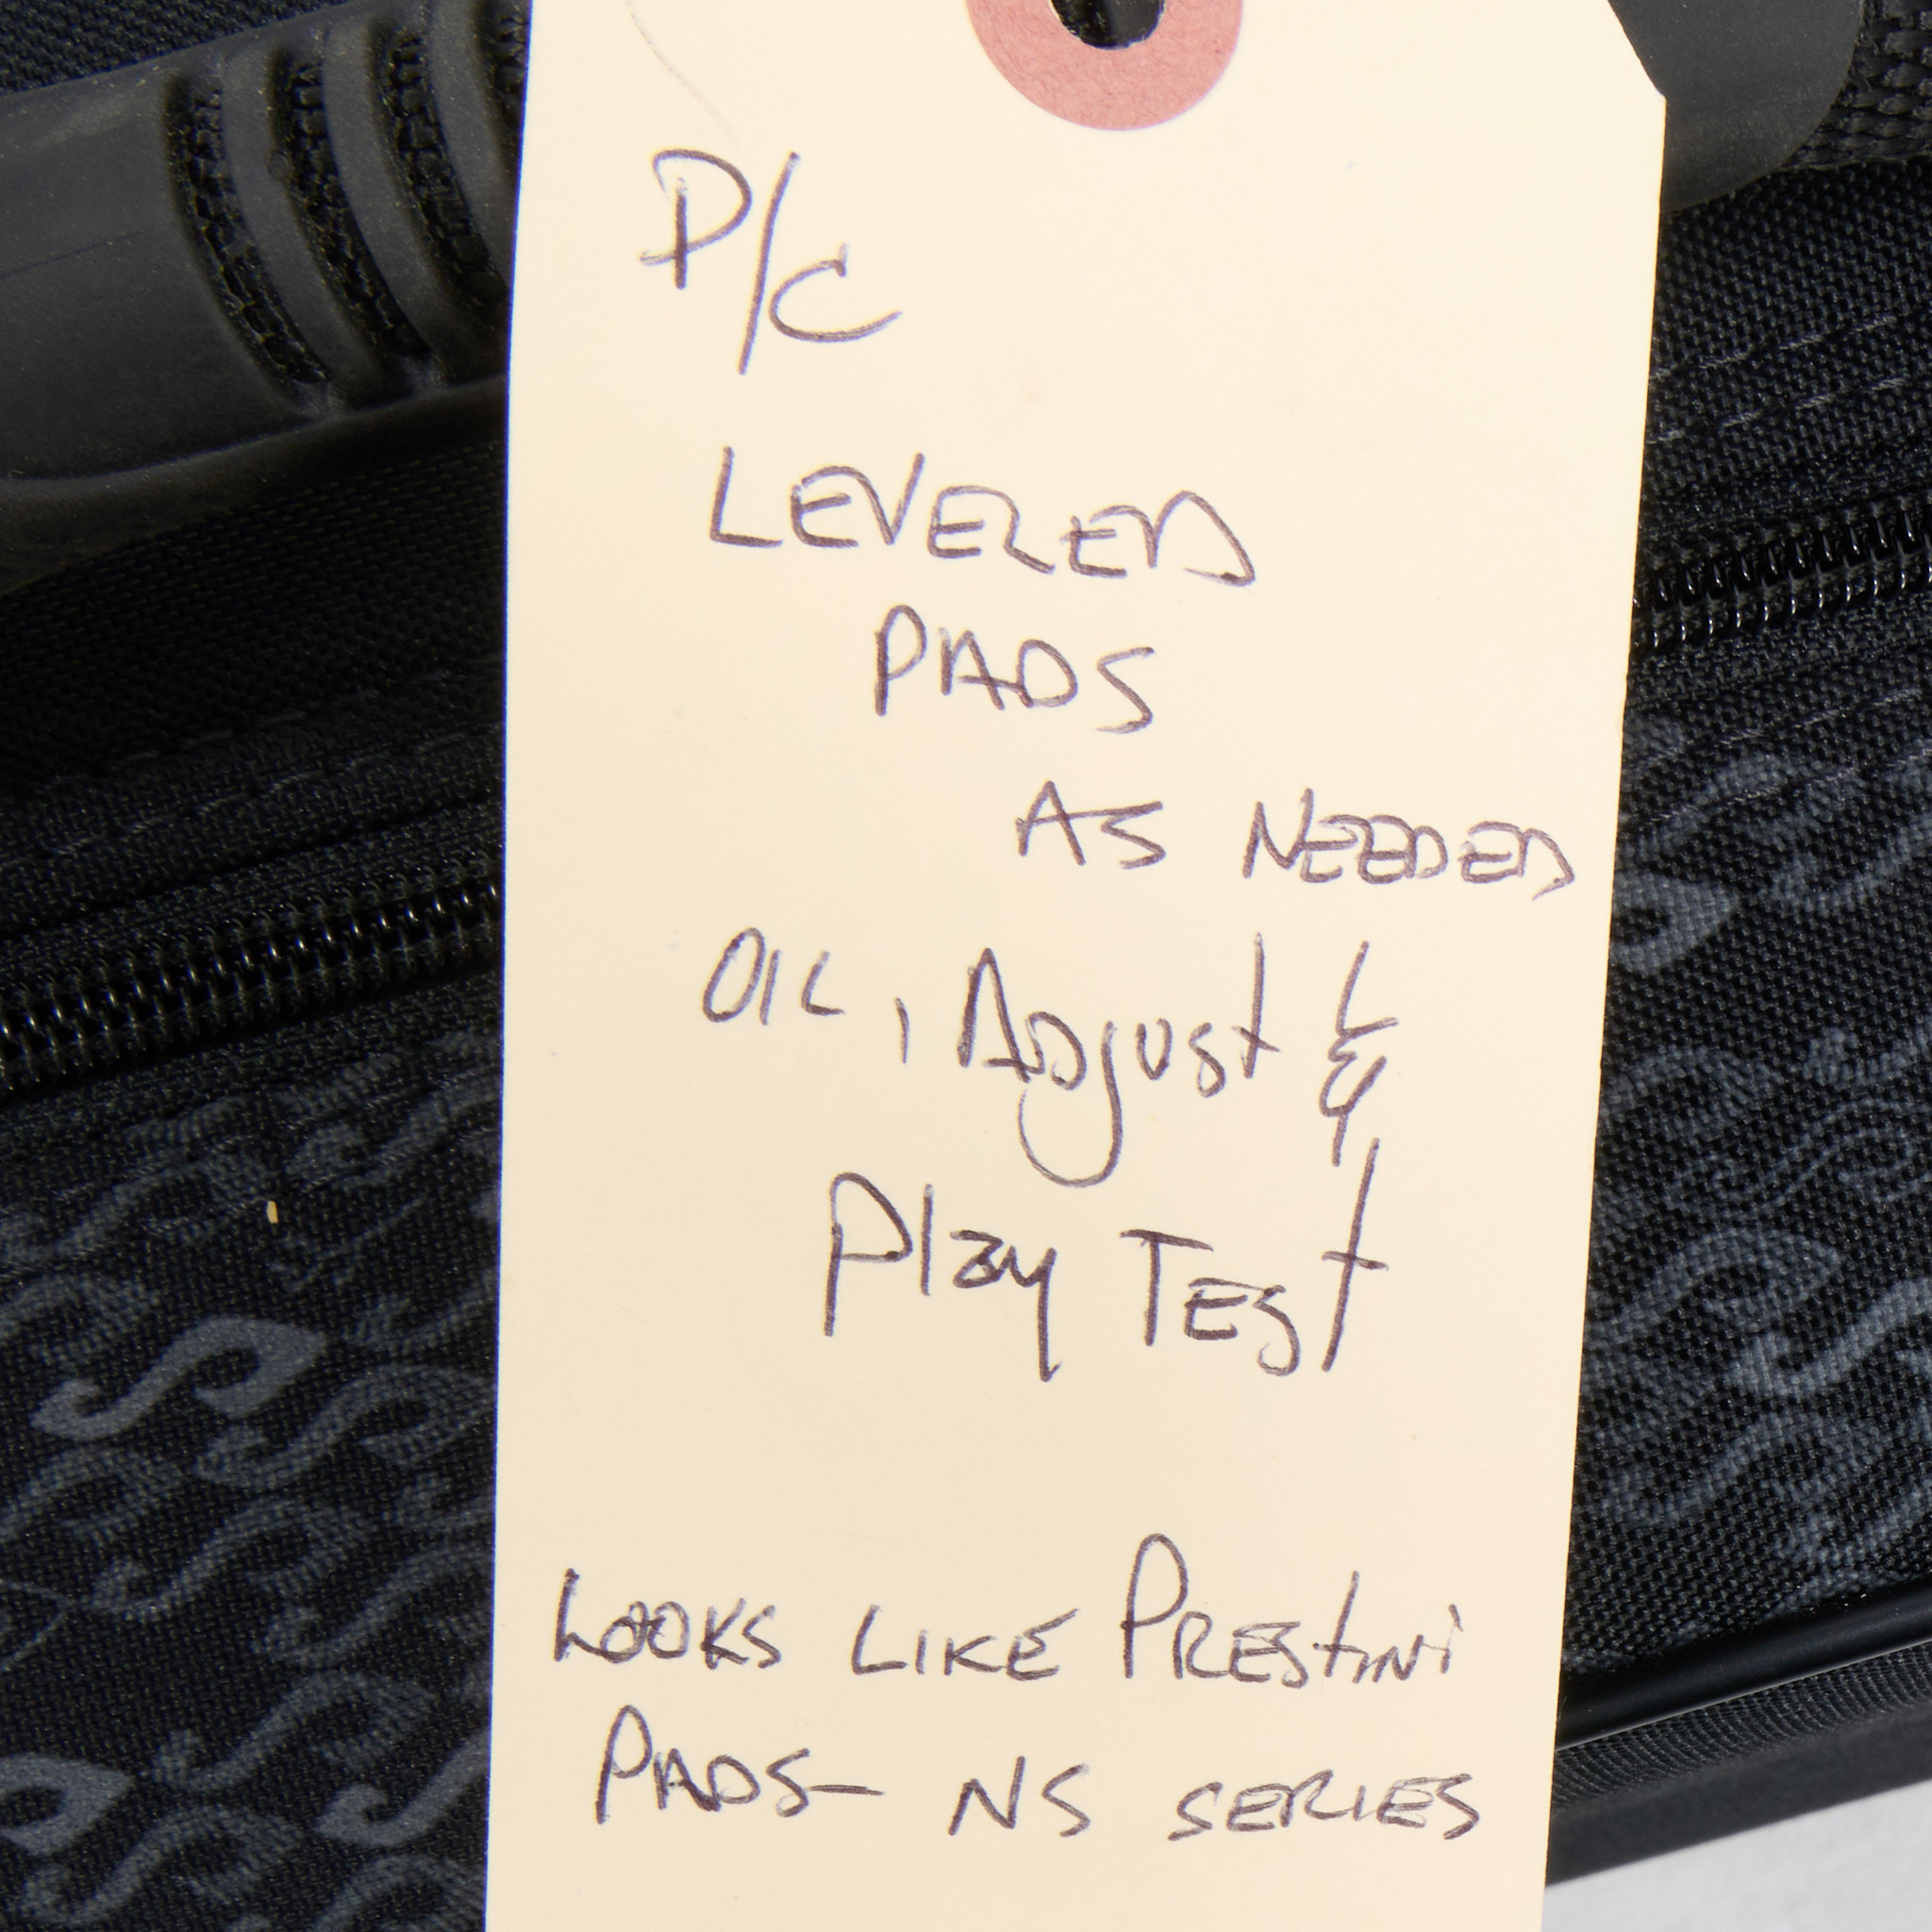 P/C
LEVELED
PADS
AS NEEDED
OIL, Adjust &
Play Test
LOOKS LIKE PRESTINI
PADS- NS SERIES